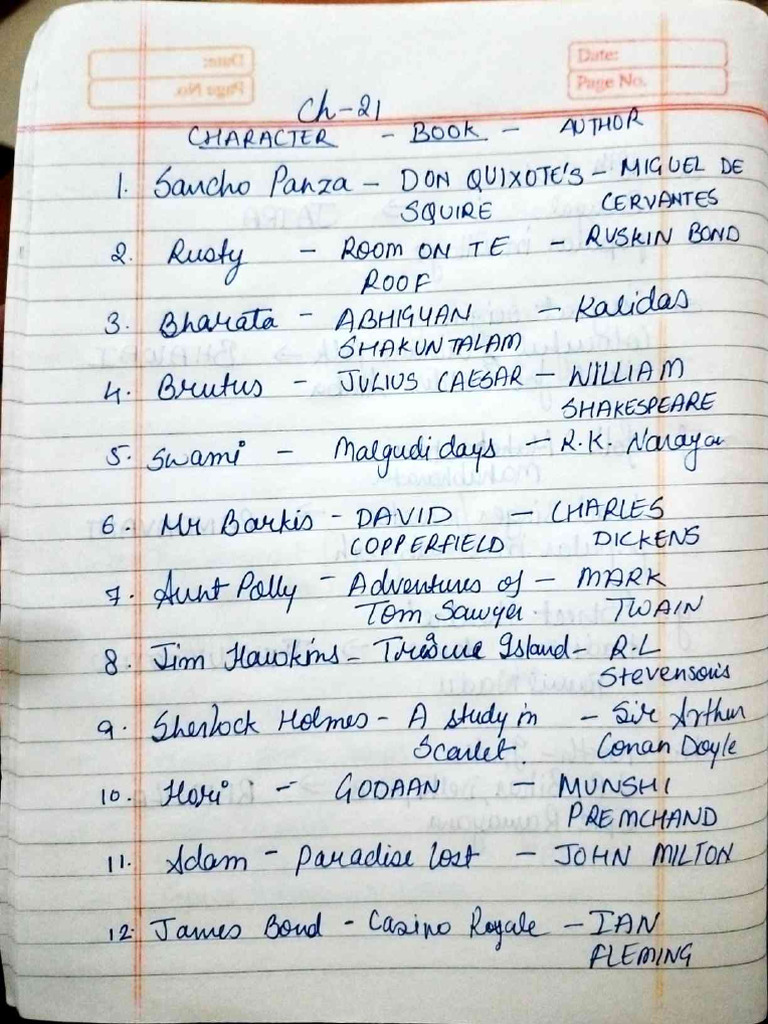 Date:
Page No.
Ch-21
CHARACTER - BOOK - AUTHOR
1. Sancho Panza - DON QUIXOTE'S - MIGUEL DE
SQUIRE CERVANTES
2. Rusty - ROOM ON TE - RUSKIN BOND
ROOF
3. Bharata - ABHIGYAN - Kalidas
SHAKUNTALAM
4. Brutus - JULIUS CAESAR - WILLIAM
SHAKESPEARE
5. Swami - Malgudi days - R.K. Narayan
6. Mr Barkis - DAVID - CHARLES
COPPERFIELD DICKENS
7. Aunt Polly - Adventures of - MARK
Tom Sawyer. TWAIN
8. Jim Hawkins - Island - R.L
Stevenson's
9. Sherlock Holmes - A study in - Sir Arthur
Scarlet. Conan Doyle
10. Hori - GODAAN - MUNSHI
PREMCHAND
11. Adam - Paradise lost - JOHN MILTON
12. James Bond - Casino Royale - IAN
FLEMING